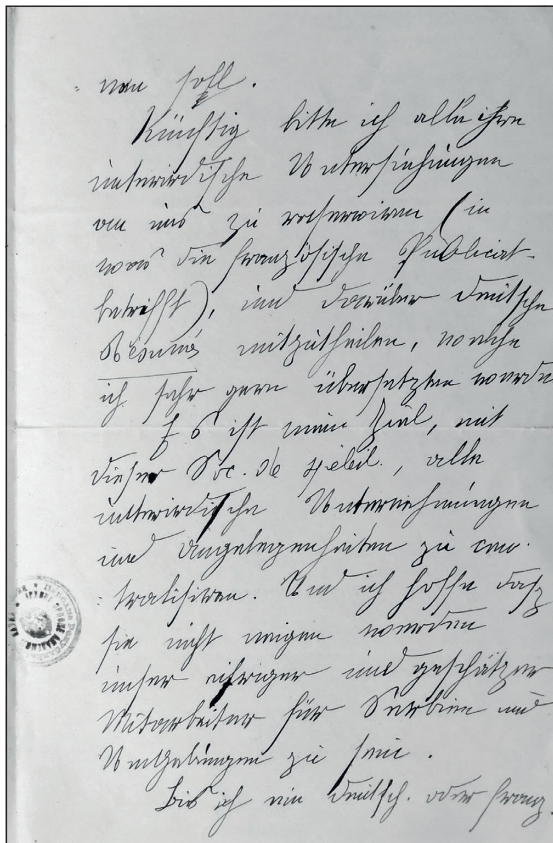 nen soll.
Künftig bitte ich alle ihre
unterirdische Untersuchungen
an uns zu reserviren (in
was die französische Publicat-
betrifft), und darüber deutsche
Résumés mitzutheilen, welche
ich sehr gern übersetzten werde
Es ist mein Ziel, mit
dieser Soc. de spéléol., alle
unterirdische Unternehmungen
und Angelegenheiten zu cen-
tralisiren. Und ich hoffe daß
sie nicht neigen werden
unser eifriger und geschätzer
Mitarbeiter für Serbien und
Umgebungen zu sein.
Bis ich ein deutsch. oder franz.